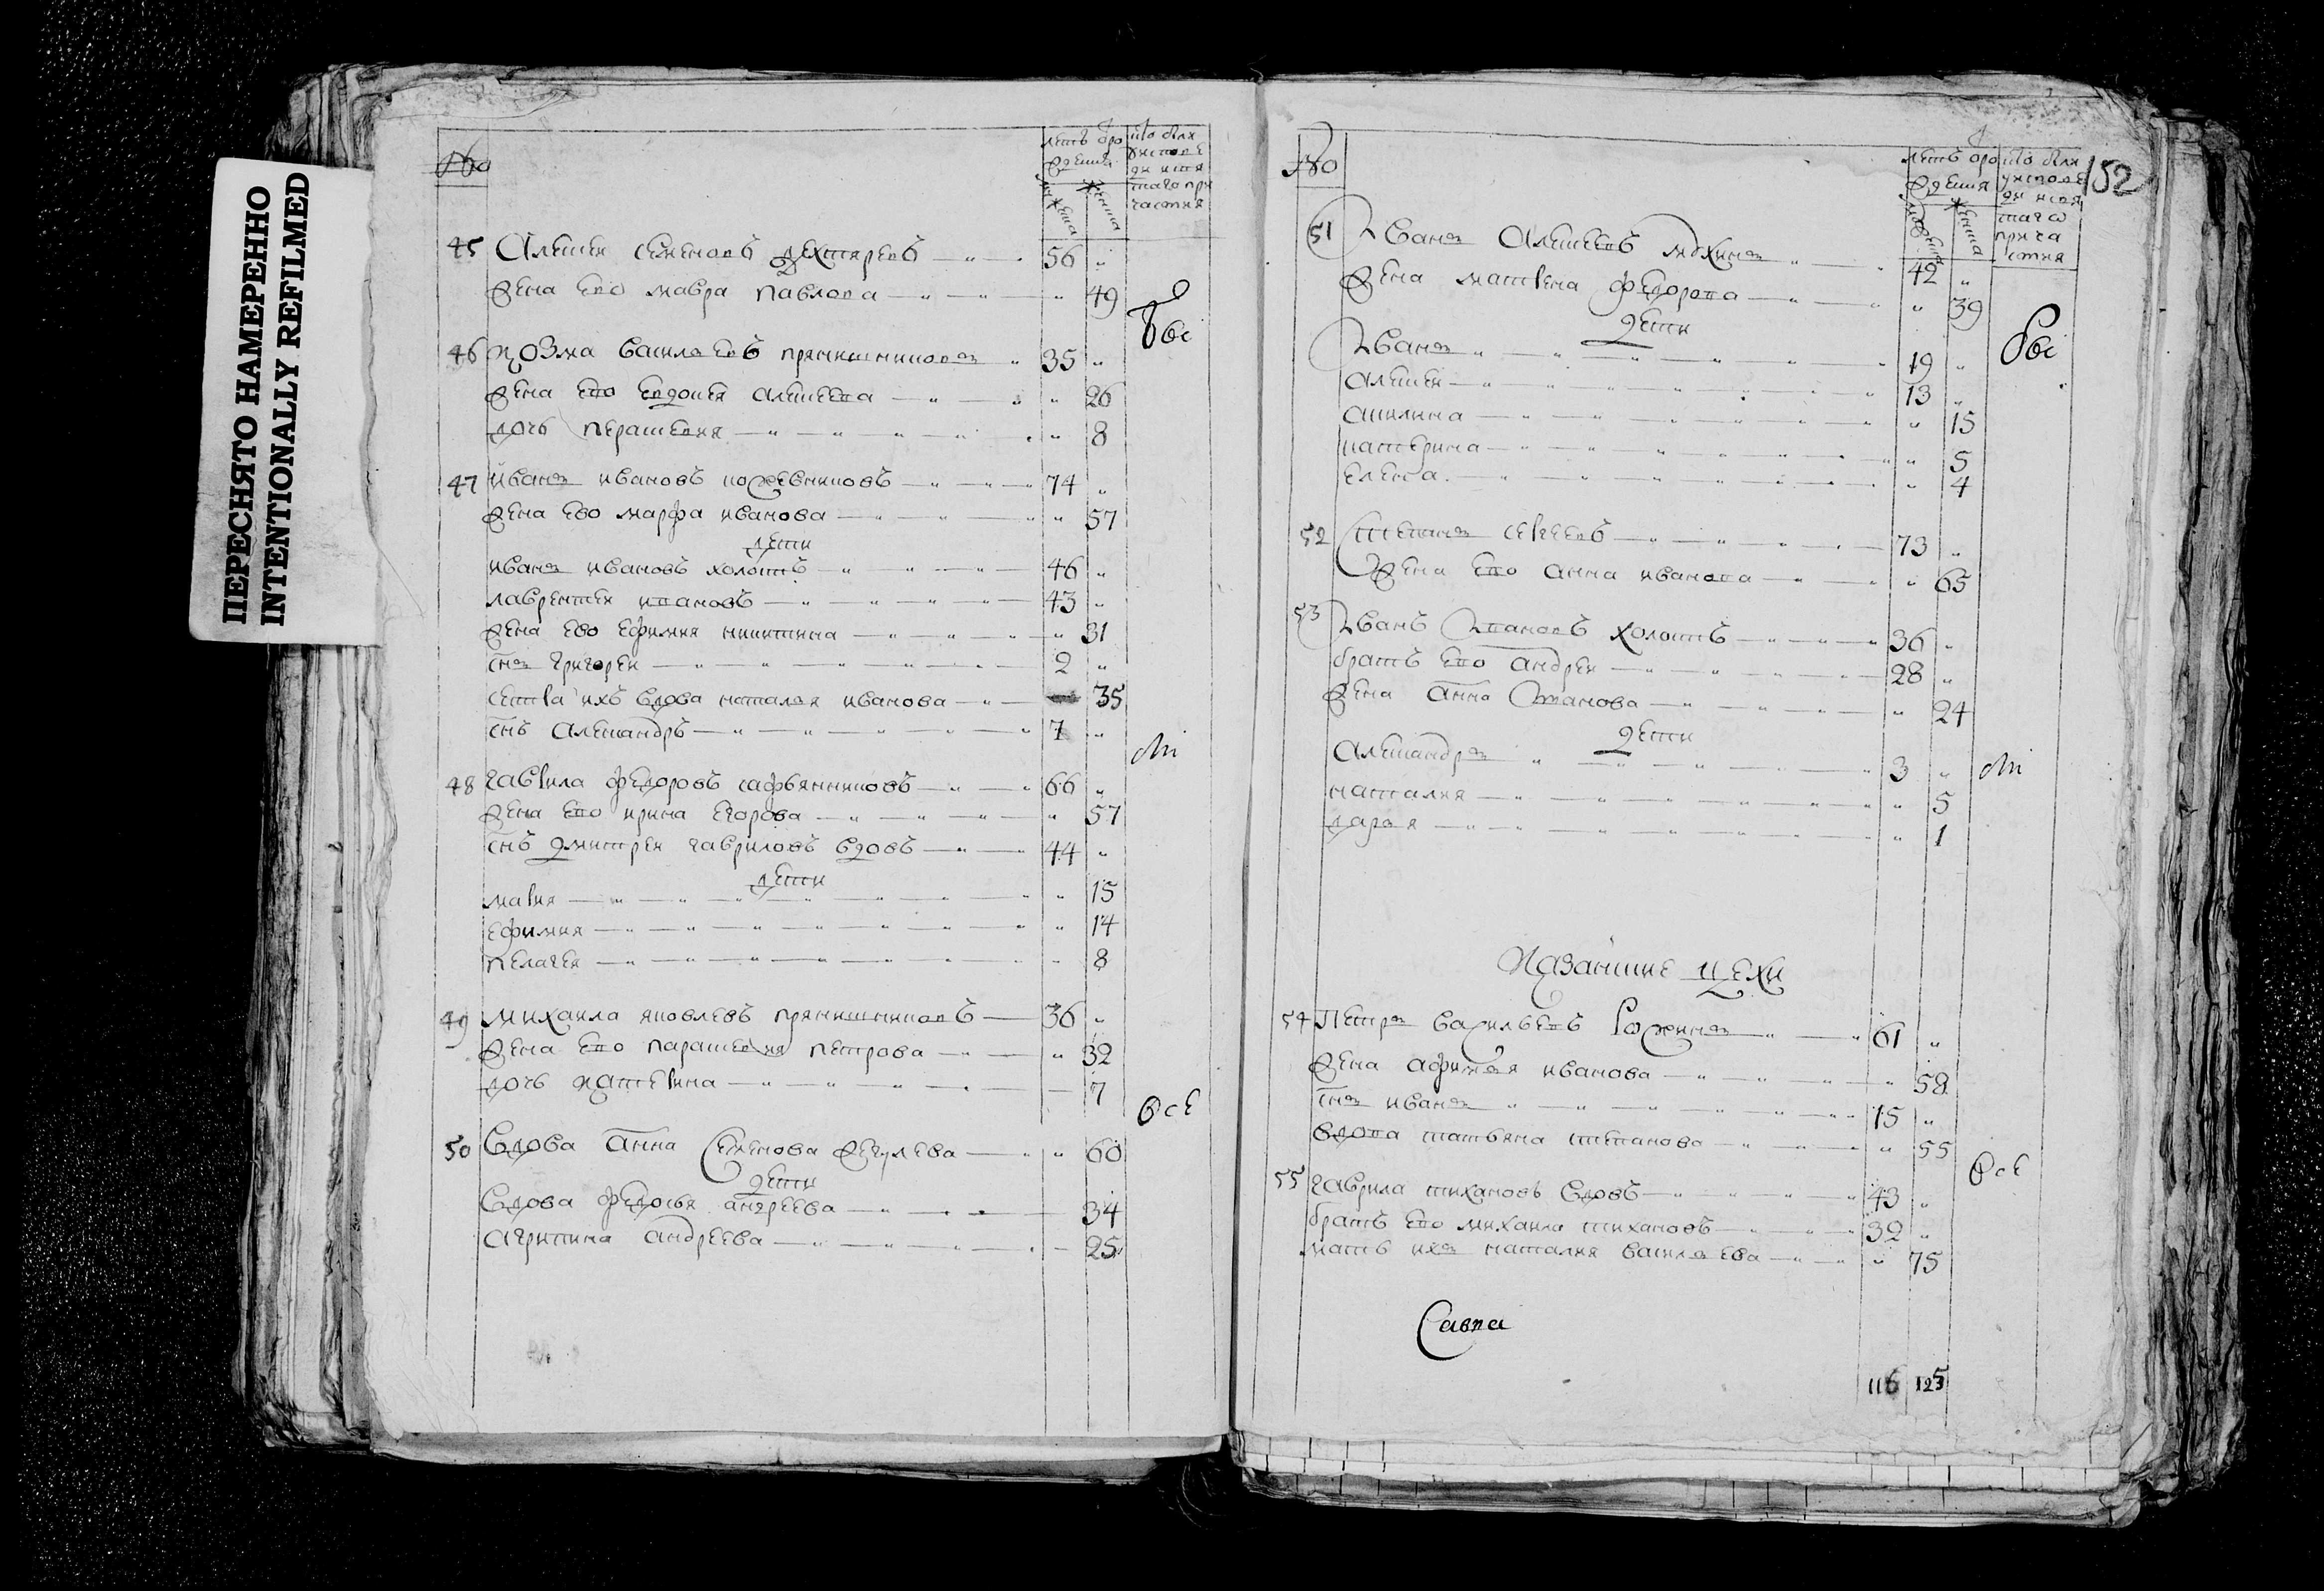 ПЕРЕСНЯТО НАМЕРЕННО
INTENTIONALLY REFILMED
№
летъ от ро
ждения
мужеска
женска
кто был
у исповеди и святаго причастия
45 Алексей Семеновъ Дехтяревъ 56
жена ево Мавра Павлова 49
46 Козма Васильевъ Прянишниковъ 35
жена ево Евдокея Алексеева 26
дочь Перасковия 8
47 Иванъ Ивановъ Кожевниковъ 74
жена ево Марфа Иванова 57
дети
Иванъ Ивановъ холостъ 46
Лаврентей Ивановъ 43
жена ево Ефимия Никитина 31
снъ Григорей 2
сестра ихъ вдова Наталья Иванова 35
снъ Александръ 7
48 Гаврила Федоровъ Сафьянниковъ 66
жена ево Ирина Егорова 57
снъ Дмитрей Гавриловъ вдовъ 44
дети
Мария 15
Ефимия 14
Пелагея 8
49 Михаила Яковлевъ Прянишниковъ 36
жена ево Парасковия Петрова 32
дочь Катерина 7
50 Вдова Анна Семенова 60
дети
Вдова Федосья Андреева 34
Агрипина Андреева 25
бы
ли
все
№
летъ от ро
ждения
кто был
у исповеди и святаго
прича
стия
152
51 Иванъ Алексеевъ Мохинъ 42
жена Матрена Федорова 39
дети
Иванъ 19
Алексей 13
Акилина 15
Катерина 5
Елена 4
52 Степанъ Сергеевъ 73
жена ево Анна Иванова 65
53 Иванъ Ивановъ холостъ 36
братъ ево Андрей 28
жена Анна Степанова 24
дети
Александръ 3
Наталия 5
Дарья 1
бы
ли
Казанские цехи
54 Петръ Васильевъ Рожинъ 61
жена Афимья Иванова 58
снъ Иванъ 15
вдова Татьяна Степанова 55
55 Гаврила Тихановъ вдовъ 43
братъ ево Михаила Тихановъ 32
мать ихъ Наталия Васильева 75
все
Савва
116 125